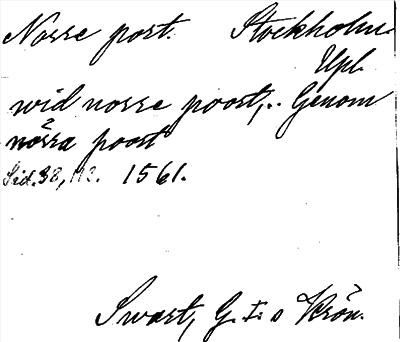 Norre port. Stockholm.
Upl.
wid norre poost,.. Genom
nörra poost
Sid. 38, 113. 1561.
Swart, G. I:s Krön.